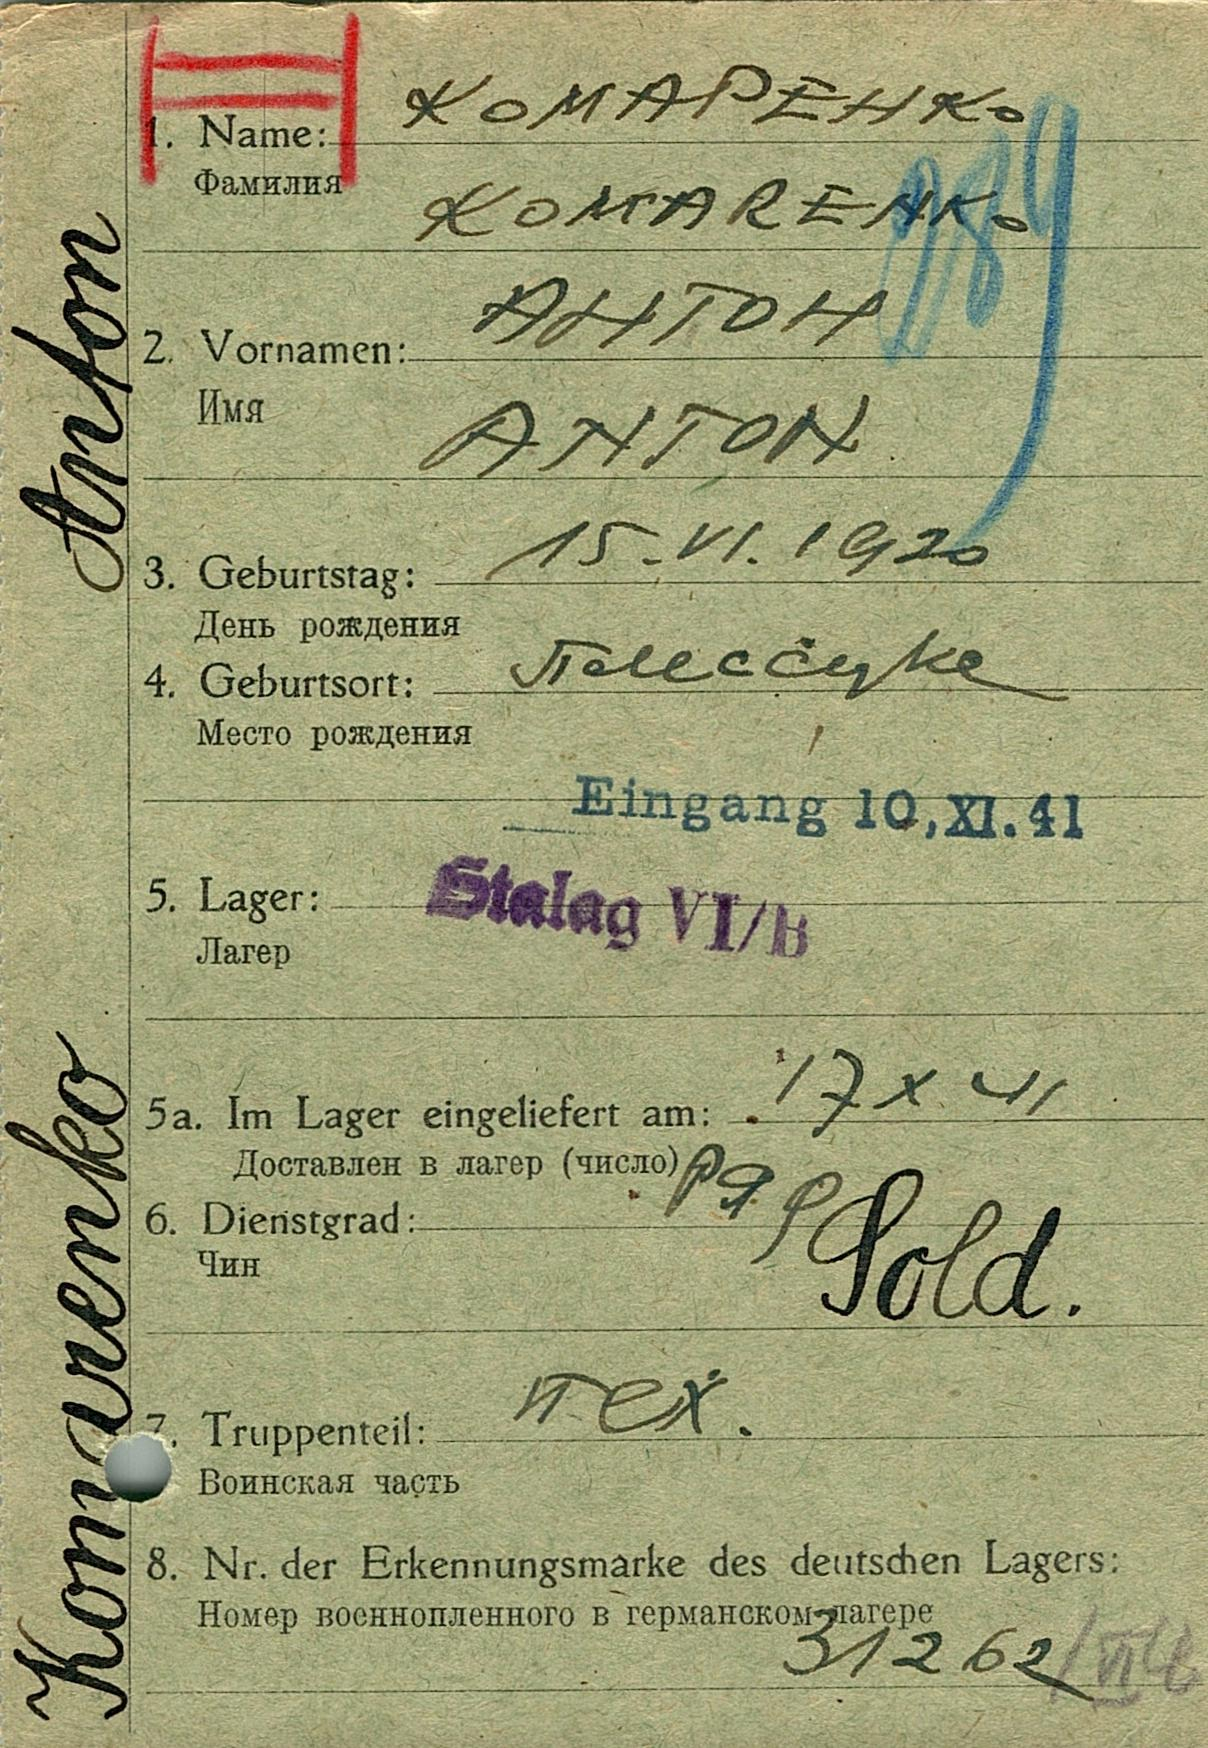 1. Name: КОМАРЕНКО
Фамилия
KOMARENKO
989
2. Vornamen: АНТОН
Имя
ANTON
3. Geburtstag: 15.VI.1920
День рождения
4. Geburtsort:
Место рождения
Eingang 10,XI.41
5. Lager: Stalag VI/B
Лагер
5a. Im Lager eingeliefert am: 17 X 41
Доставлен в лагер (число)
6. Dienstgrad: Sold.
Чин
7. Truppenteil: пех.
Воинская часть
8. Nr. der Erkennungsmarke des deutschen Lagers:
Номер военнопленного в германском лагере
31262
Komarenko Anton